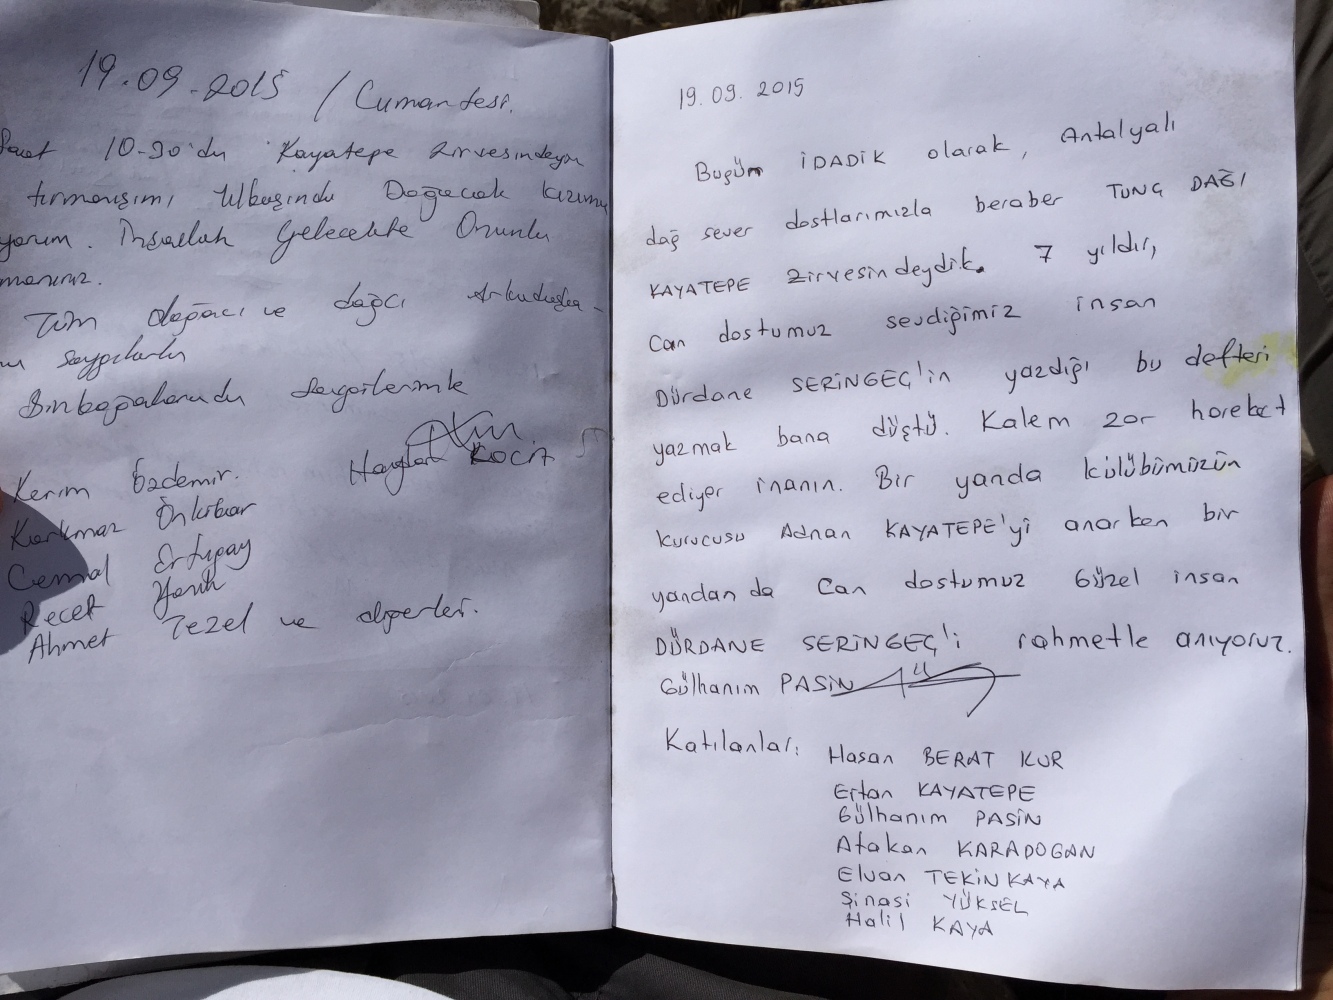 19.09.2015 / Cumartesi.
Saat 10-30'du Kayatepe zirvesindeyim
tırmanışımı, Yılbaşında Doğacak kızıma
yorum. İnşallah Gelecekte Onunla
Tüm doğacı ve dağcı Arkadaşla-
saygılarla
Binboğalarında Sevgilerimle
Kerim Özdemir.
Korkmaz
Cemal
Recep
Ahmet Tezel ve diğerleri.
19.09.2015
Bugün İDADİK olarak, Antalyalı
dağ sever dostlarımızla beraber TUNÇ DAĞI
KAYATEPE zirvesindeydik. 7 yıldır,
Can dostumuz sevdiğimiz insan
Dürdane SERİNGEÇ'in yazdığı bu defteri
yazmak bana düştü. Kalem zor hareket
ediyer inanın. Bir yanda külübümüzün
kurucusu Adnan KAYATEPE'yi anarken bir
yandan da Can dostumuz Güzel insan
DÜRDANE SERİNGEÇ'i rahmetle anıyoruz.
Gülhanım PASİN
Katılanlar:
Hasan BERAT KUR
Ertan KAYATEPE
Gülhanım PASİN
Atakan KARADOGAN
Elvan TEKİNKAYA
Şinasi YÜKSEL
Halil KAYA